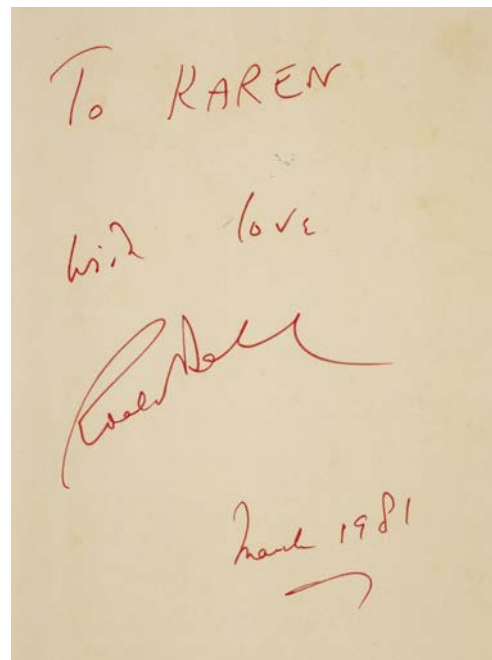 To KAREN
with love
Roald Dahl
March 1981